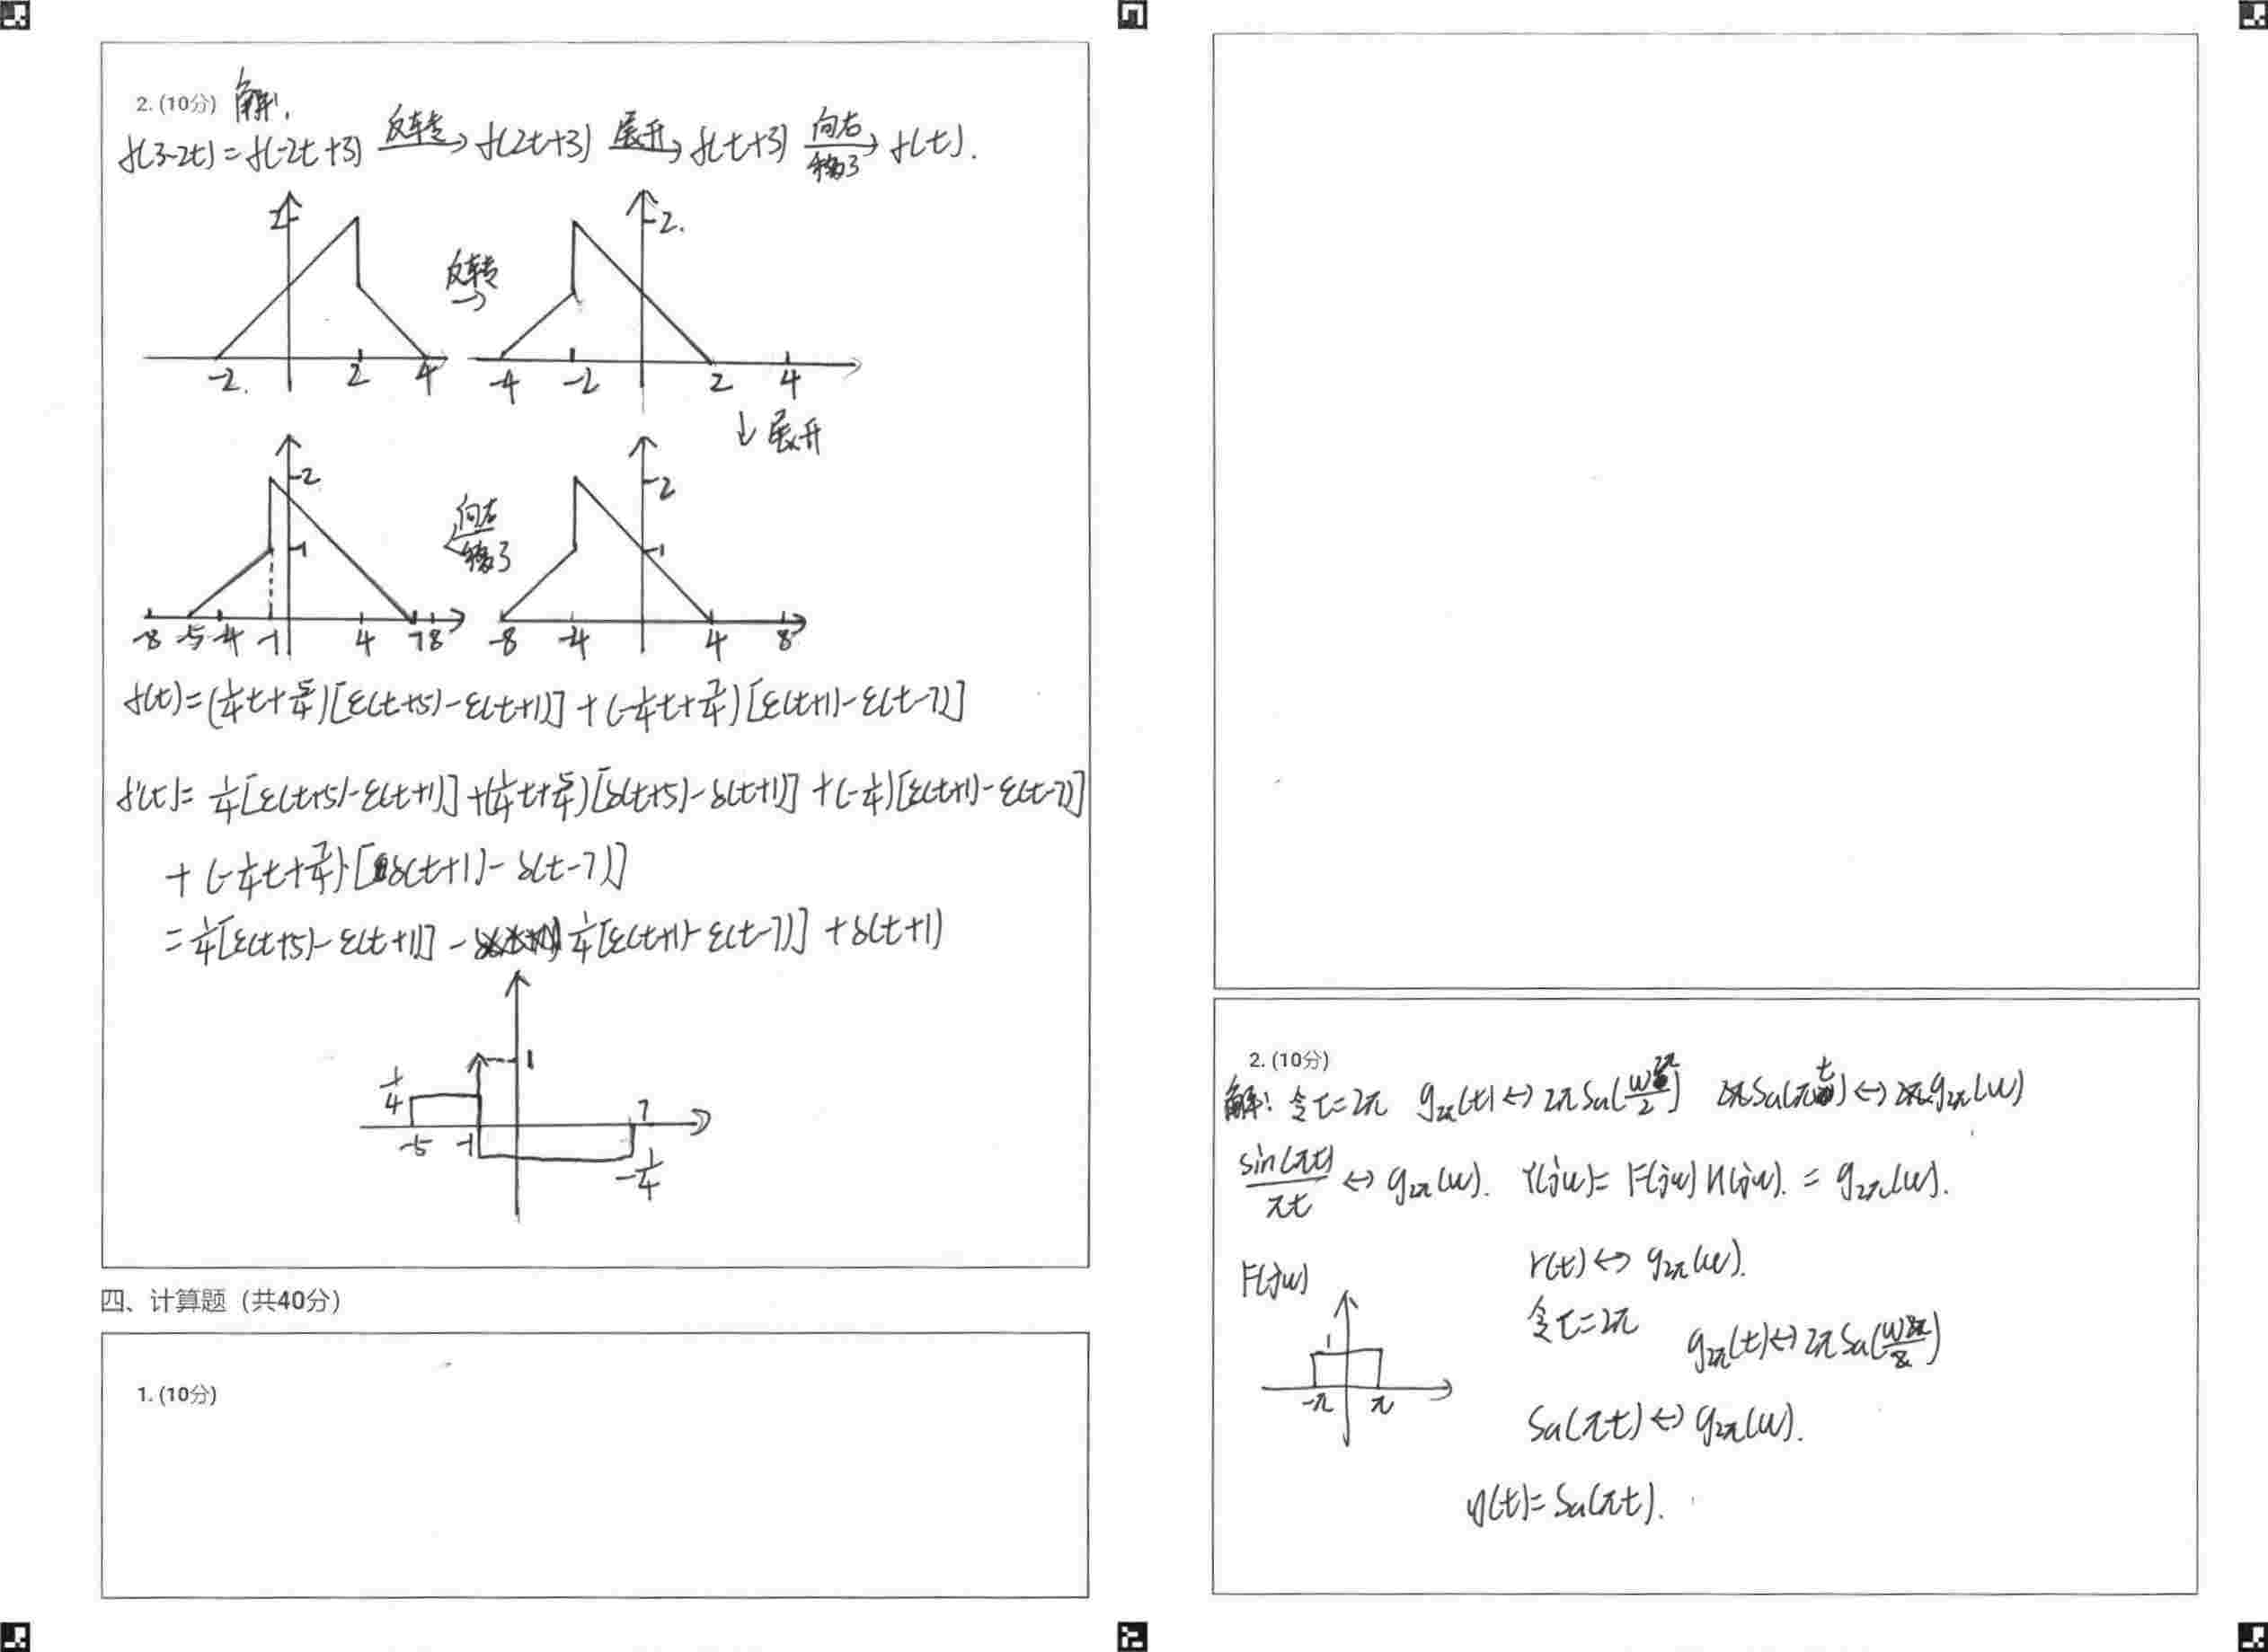 2. (10分) 解:
f(3-2t)=f(-2t+3) 反转→ f(2t+3) 展开→ f(t+3) 向右移3→ f(t).
2 -2. 2 4
反转→
2. -4 -2 2 4
↓展开
2 1 -8 -5 -4 -1 4 7 8
向右移3←
2 1 -8 -4 4 8
f(t)=(1/4t+5/4)[ε(t+5)-ε(t+1)]+(-1/4t+7/4)[ε(t+1)-ε(t-7)]
f'(t)=1/4[ε(t+5)-ε(t+1)]+(1/4t+5/4)[δ(t+5)-δ(t+1)]+(-1/4)[ε(t+1)-ε(t-7)]
+(-1/4t+7/4)·[δ(t+1)-δ(t-7)]
=1/4[ε(t+5)-ε(t+1)]-1/4[ε(t+1)-ε(t-7)]+δ(t+1)
1
1/4 7
-5 -1 -1/4
四、计算题（共40分）
1. (10分)
2. (10分)
解: 令τ=2π g2π(t)↔2πSa(ω2π/2) Sa(πt)↔g2π(ω)
sin(πt)/πt ↔ g2π(ω). Y(jω)=F(jω)H(jω).=g2π(ω).
Y(t)↔g2π(ω).
F(jω)
1
-π π
令τ=2π g2π(t)↔2πSa(ω2π/2)
Sa(πt)↔g2π(ω).
y(t)=Sa(πt).